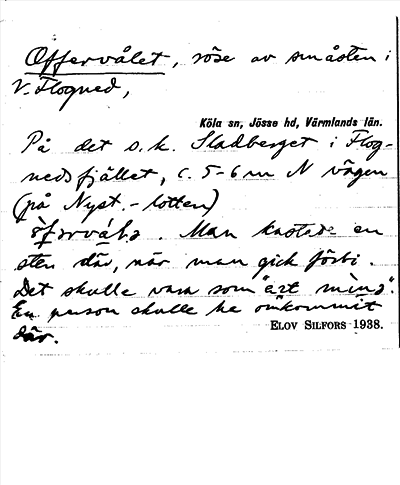 Offervålet, röse av småsten i
V. Flogned,
Köla sn, Jösse hd, Värmlands län.
På det s.k. Sladberget i Flog-
nedsfjället, c. 5-6 m N vägen
(på Nyst.-lotten)
Man kastade en
sten där, när man gick förbi.
Det skulle vara som "ett minne".
En person skulle ha omkommit
där.
ELOV SILFORS 1938.